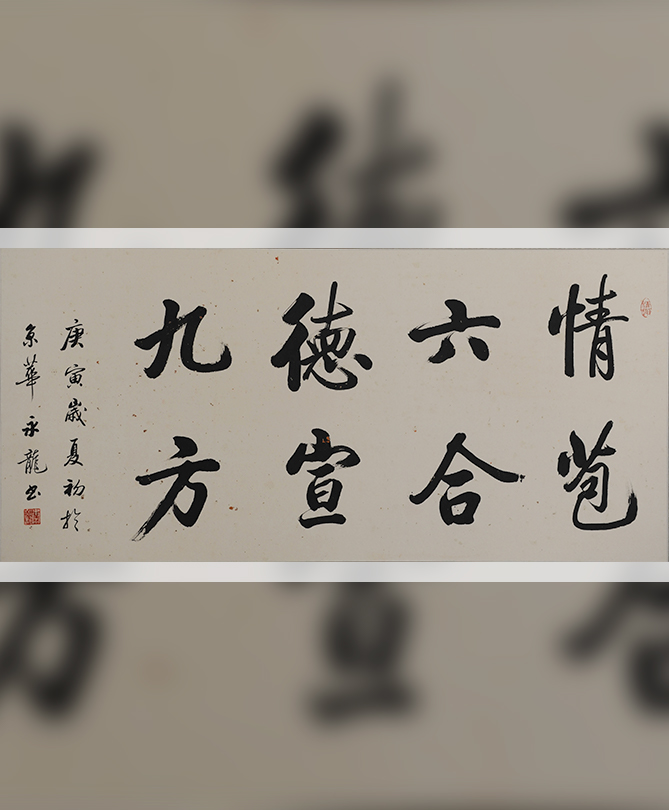 情苞
六合
德宣
九方
庚寅歲夏初於
京華永龍書